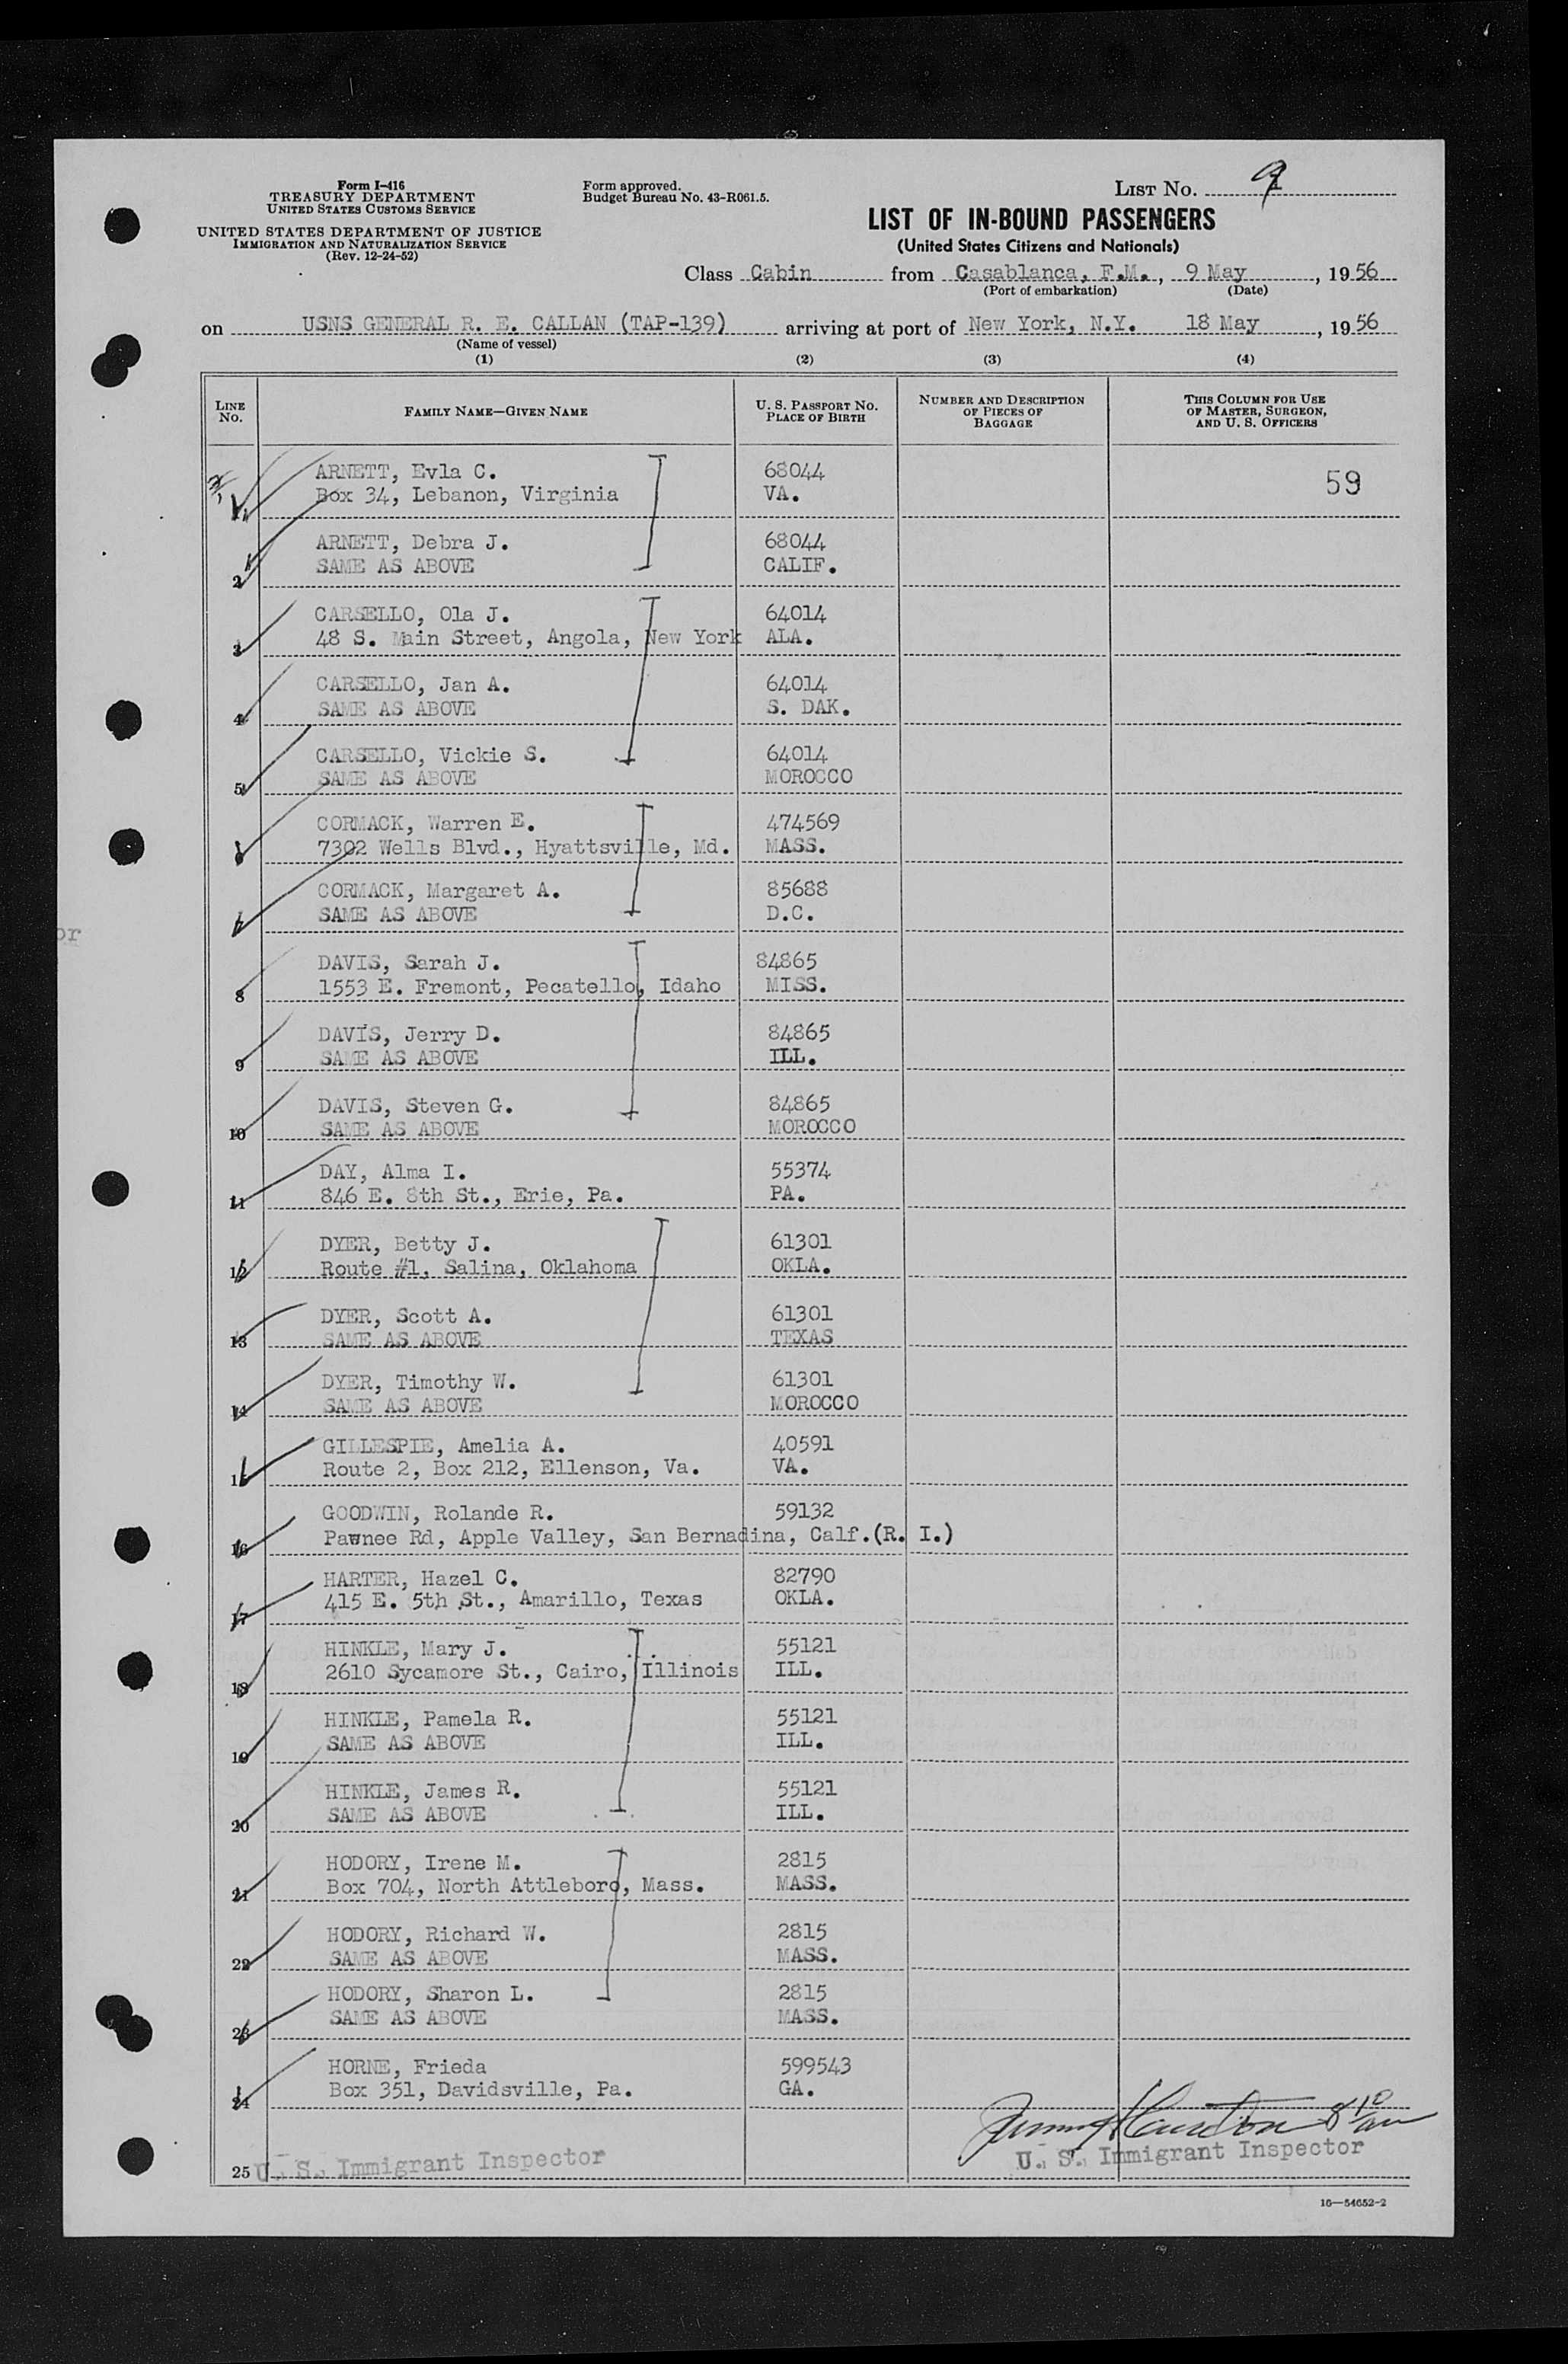 Form I-416
TREASURY DEPARTMENT
UNITED STATES CUSTOMS SERVICE
UNITED STATES DEPARTMENT OF JUSTICE
IMMIGRATION AND NATURALIZATION SERVICE
(Rev. 12-24-52)
Form approved.
Budget Bureau No. 43-R061.5.
LIST No. 9
LIST OF IN-BOUND PASSENGERS
(United States Citizens and Nationals)
Class Cabin from Casablanca, F.M., 9 May, 1956
(Port of embarkation) (Date)
on USNS GENERAL R. E. CALLAN (TAP-139) arriving at port of New York, N.Y. 18 May, 1956
(Name of vessel)
(1) (2) (3) (4)
LINE No. FAMILY NAME—GIVEN NAME U. S. PASSPORT No. PLACE OF BIRTH NUMBER AND DESCRIPTION OF PIECES OF BAGGAGE THIS COLUMN FOR USE OF MASTER, SURGEON, AND U. S. OFFICERS
ARNETT, Evla C. 68044 59
1 Box 34, Lebanon, Virginia VA.
ARNETT, Debra J. 68044
2 SAME AS ABOVE CALIF.
CARSELLO, Ola J. 64014
3 48 S. Main Street, Angola, New York ALA.
CARSELLO, Jan A. 64014
4 SAME AS ABOVE S. DAK.
CARSELLO, Vickie S. 64014
5 SAME AS ABOVE MOROCCO
CORMACK, Warren E. 474569
6 7302 Wells Blvd., Hyattsville, Md. MASS.
CORMACK, Margaret A. 85688
7 SAME AS ABOVE D.C.
or
DAVIS, Sarah J. 84865
8 1553 E. Fremont, Pecatello, Idaho MISS.
DAVIS, Jerry D. 84865
9 SAME AS ABOVE ILL.
DAVIS, Steven G. 84865
10 SAME AS ABOVE MOROCCO
DAY, Alma I. 55374
11 846 E. 8th St., Erie, Pa. PA.
DYER, Betty J. 61301
12 Route #1, Salina, Oklahoma OKLA.
DYER, Scott A. 61301
13 SAME AS ABOVE TEXAS
DYER, Timothy W. 61301
14 SAME AS ABOVE MOROCCO
GILLESPIE, Amelia A. 40591
15 Route 2, Box 212, Ellenson, Va. VA.
GOODWIN, Rolande R. 59132
16 Pawnee Rd, Apple Valley, San Bernadina, Calf.(R. I.)
HARTER, Hazel C. 82790
17 415 E. 5th St., Amarillo, Texas OKLA.
HINKLE, Mary J. 55121
18 2610 Sycamore St., Cairo, Illinois ILL.
HINKLE, Pamela R. 55121
19 SAME AS ABOVE ILL.
HINKLE, James R. 55121
20 SAME AS ABOVE ILL.
HODORY, Irene M. 2815
21 Box 704, North Attleboro, Mass. MASS.
HODORY, Richard W. 2815
22 SAME AS ABOVE MASS.
HODORY, Sharon L. 2815
23 SAME AS ABOVE MASS.
HORNE, Frieda 599543
24 Box 351, Davidsville, Pa. GA.
25 U. S. Immigrant Inspector U. S. Immigrant Inspector
16—54652-2